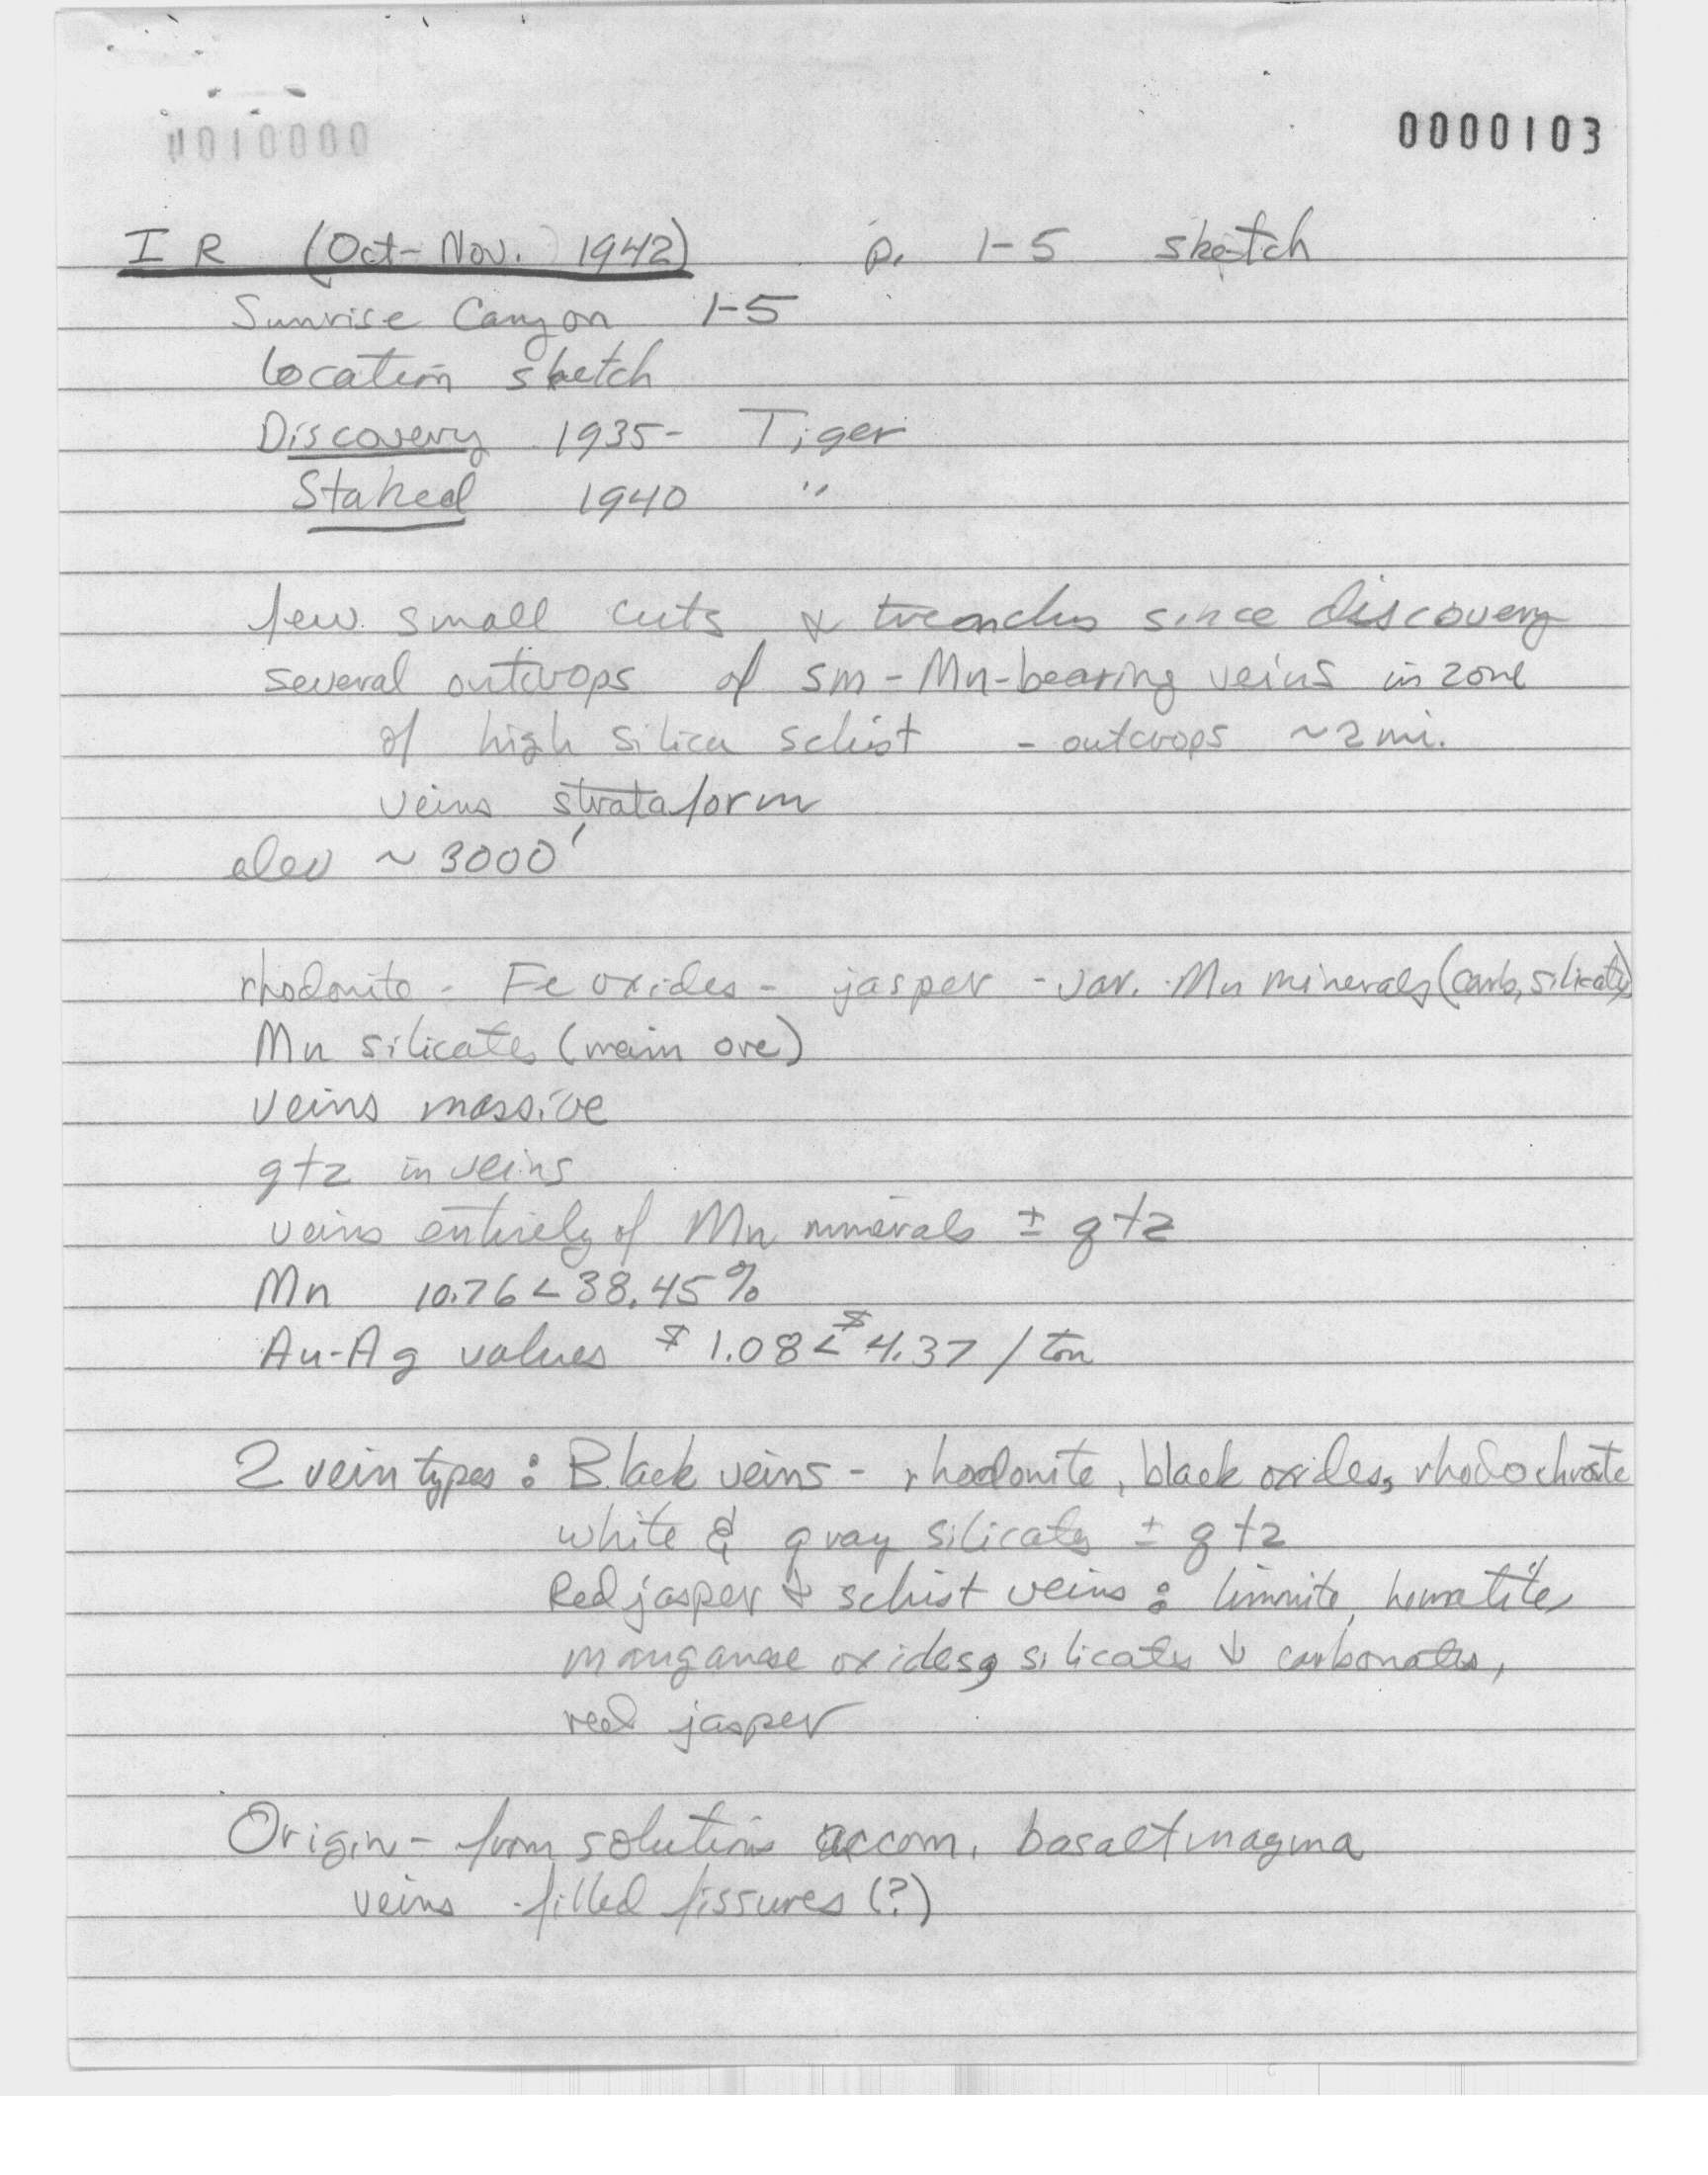 0000103
I R (Oct-Nov. 1942) p. 1-5 sketch
Sunrise Canyon 1-5
location sketch
Discovery 1935- Tiger
Staked 1940 "
few small cuts & trenches since discovery
several outcrops of sm-Mn-bearing veins in zone
of high silica schist - outcrops ~2 mi.
veins strataform
elev ~ 3000'
rhodonite - Fe oxides - jasper - var. Mn minerals (carb, silicate)
Mn silicates (main ore)
veins massive
qtz in veins
veins entirely of Mn minerals ± qtz
Mn 10.76 < 38.45%
Au-Ag values $1.08 < $4.37 / ton
2 vein types: Black veins - rhodonite, black oxides, rhodochrosite
white & gray silicates ± qtz
Red jasper & schist veins: limonite, hematite,
manganese oxides, silicates & carbonates,
red jasper
Origin - from solutions accom. basalt magma
veins filled fissures (?)